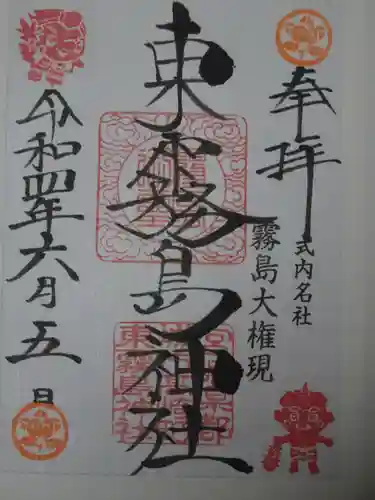 奉拝
式内名社
霧島大権現
東霧島神社
令和四年六月五日